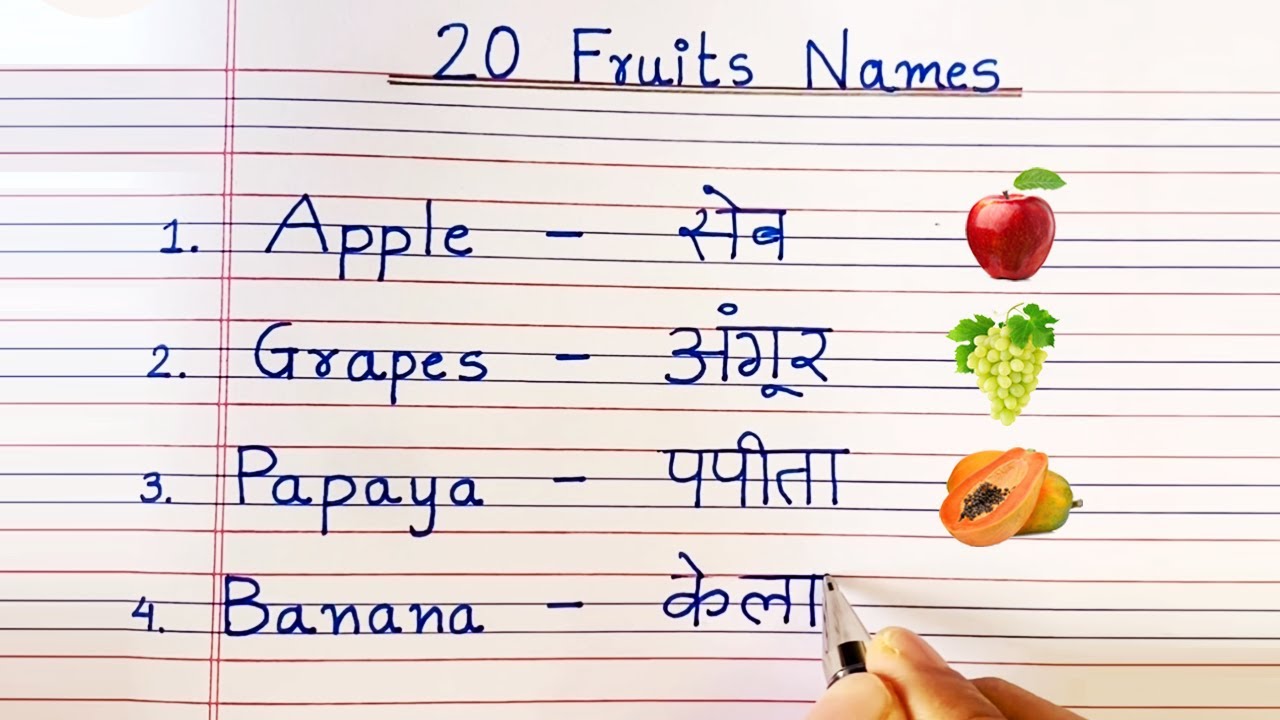 20 Fruits Names
1. Apple - सेब
2. Grapes - अंगूर
3. Papaya - पपीता
4. Banana - केला